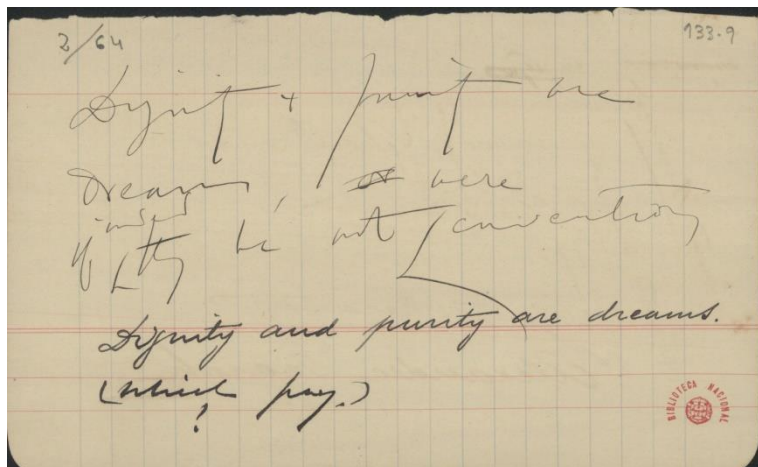 2/64
133-9
Dignity + purity are
dreams, or mere
indeed
if they be not conventions
Dignity and purity are dreams.
(which pay.)
?
BIBLIOTECA NACIONAL